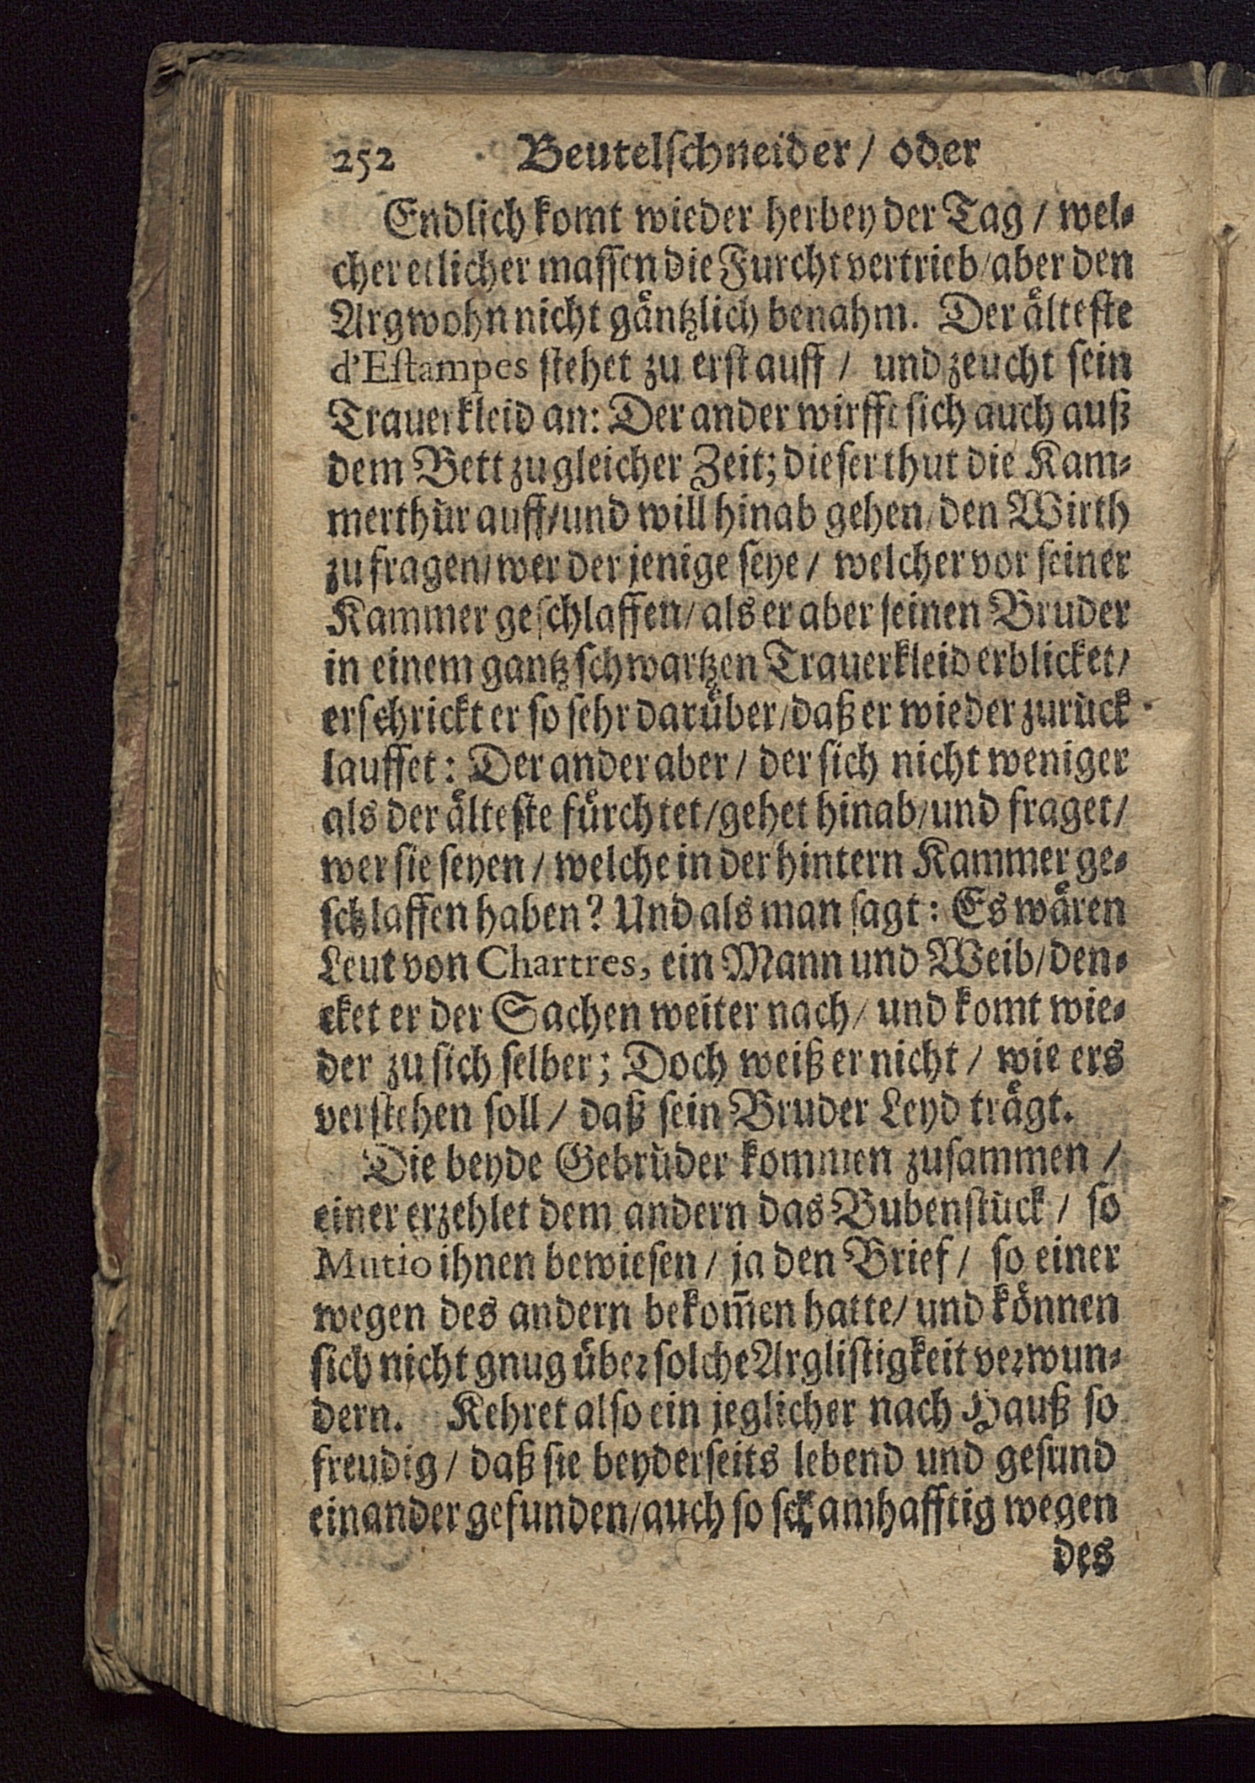 252 Beutelschneider / oder
Endlich komt wieder herbey der Tag / wel-
cher etlicher massen die Furcht vertrieb / aber den
Argwohn nicht gäntzlich benahm. Der älteste
d'Estampes stehet zu erst auff / und zeucht sein
Trauerkleid an: Der ander wirfft sich auch auß
dem Bett zu gleicher Zeit; dieser thut die Kam-
merthür auff / und will hinab gehen / den Wirth
zu fragen / wer der jenige seye / welcher vor seiner
Kammer geschlaffen / als er aber seinen Bruder
in einem gantz schwartzen Trauerkleid erblicket /
erschrickt er so sehr darüber / daß er wieder zurück
lauffet: Der ander aber / der sich nicht weniger
als der älteste fürchtet / gehet hinab / und fraget /
wer sie seyen / welche in der hintern Kammer ge-
schlaffen haben? Und als man sagt: Es wären
Leut von Chartres, ein Mann und Weib / den-
cket er der Sachen weiter nach / und komt wie-
der zu sich selber; Doch weiß er nicht / wie ers
verstehen soll / daß sein Bruder Leyd trägt.
Die beyde Gebrüder kommen zusammen /
einer erzehlet dem andern das Bubenstück / so
Mutio ihnen bewiesen / ja den Brief / so einer
wegen des andern bekom̃en hatte / und können
sich nicht gnug über solche Arglistigkeit verwun-
dern. Kehret also ein jeglicher nach Hauß so
freudig / daß sie beyderseits lebend und gesund
einander gefunden / auch so schamhafftig wegen
des